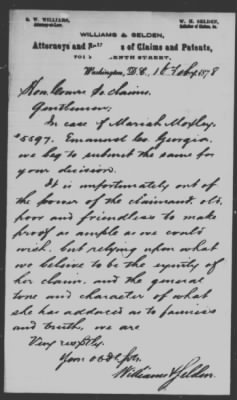 G. W. WILLIAMS,
Attorney-at-Law.
W. H. SELDEN,
Solicitor of Claims, &c.
WILLIAMS & SELDEN,
Attorneys and S of Claims and Patents,
ENTH STREET,
Washington, D.C., 1878
Hon. Comrs So. Claims.
Gentlemen:
In case of Mariah Moxley,
5597, Emanuel Co. Georgia,
we beg to submit the same for
your decision.
It is unfortunately out of
the power of the claimant, old,
poor and friendless to make
proof as ample as we could
wish, but relying upon what
we believe to be the equity of
her claim, and the general
tone and character of what
she has adduced as to fairness
and truth, we are
Very respctly.
Your obdt
Williams & Selden.